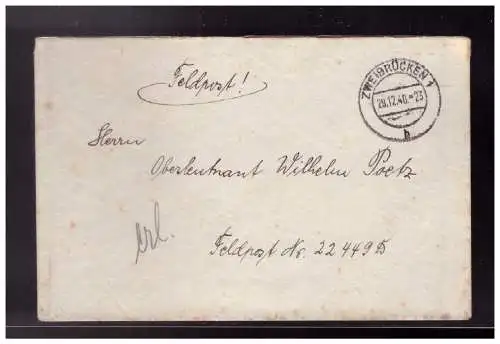 Feldpost!
ZWEIBRÜCKEN 1
28.12.40.-23
b
Herrn
Oberleutnant Wilhelm Poetz
erl.
Feldpost Nr. 22449 D